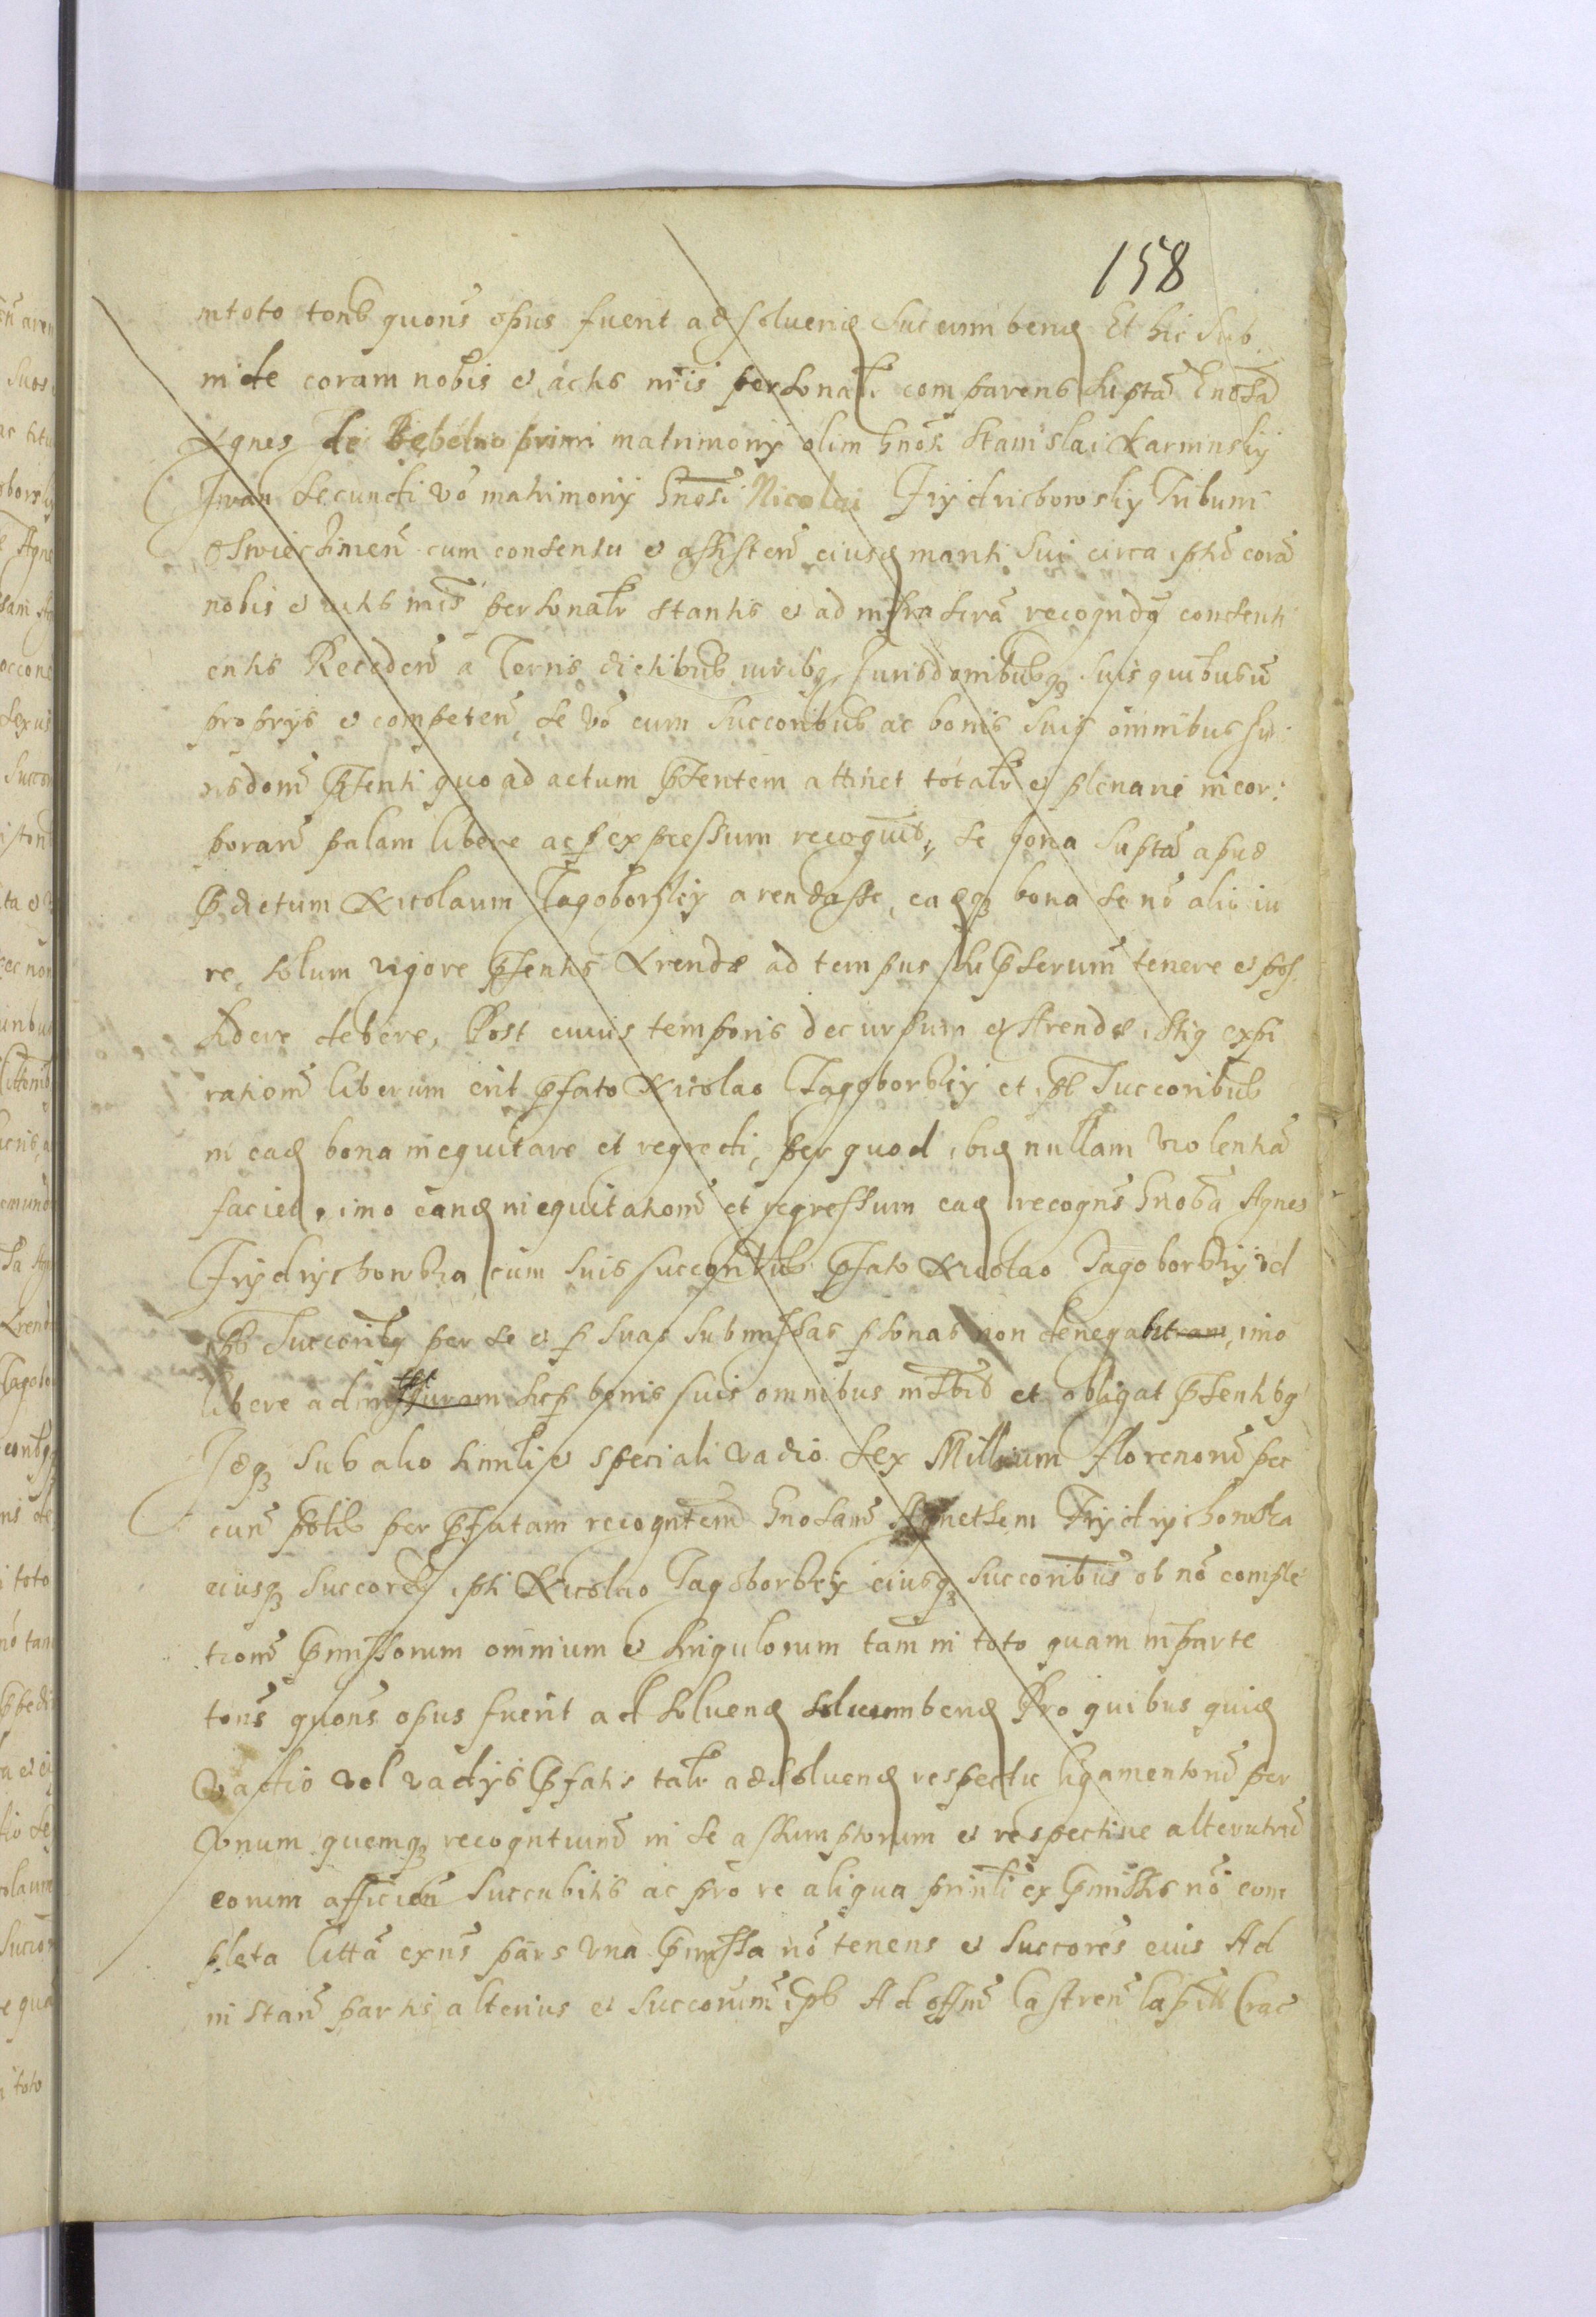 158
in toto tonš quonš opus fuerit ad soluenđ succumbenđ Et hic sub
inde coram nobis et actis nr̃is personalr̃ comparens supta Gnosa
Agnes de Bębelno primi matrimonÿ olim Gnosi Stanislai Karminskÿ
secundi vo matrimonÿ Gnosi Nicolai Frÿdrichowskÿ Tribuni
Oswiecimen̄ cum consensu et assisten̄ eiusđ mariti sui circa ipsā corā
nobis et actis nris personalr̃ stantis et ad infrascrā recogndą consenti
entis Receden̄ a Terris districtibus iuribq Jurisdonibusqȝ suis quibusūs
proprÿs et competen̄ se vo cum succoribus ac bonis suis omnibus Ju
risdoni p̄senti quo ad actum p̄sentem attinet totalr̃ et plenarie incor:
poran̄ palam libere ac p expressum recognit, se bona supta apud
p̄dictum Nicolaum Jagoborskÿ arendasse, eadqȝ bona se no alio iu
re, solum vigore p̄sentis Arendæ ad tempus sup̄scrum tenere et pos
sidere debere, Post cuius temporis decursum et Arendæ istiq expi
rationē liberum erit p̄fato Nicolao Jagoborskÿ et ipš Succoribus
in eađ bona inequitare et regredi, per quod ibiđ nullam violentiā
faciet, imo eanđ inequitationē et regressum eađ recogns Gnosa Agnes
Frÿdrÿchowska cum suis succoribus p̄fato Nicolao Jagoborskÿ et
ipš Succoribq per se et p suas submissas psonas non denegabit, imo
libere admittet sicp bonis suis omnibus inscbit et obligat p̄sentibq
Jdqȝ sub alio simili et speciali vadio sex Millium florenorū pec
cun̄ polis per p̄fatam recogntem Gnosam Agnetem Frÿdrÿchowska
eiusqȝ succores ipsi Nicolao Jagoborskÿ eiusqȝ succoribus ob no comple
tionē p̄missorum omnium et singulorum tam in toto quam in parte
tons quons opus fuerit ad soluenđ succumbenđ Pro quibus quiđ
Vadio vel vadÿs p̄fatis talr̃ ad soluenđ respectu ligamentorū per
vnum quemqȝ recogntium in se assumptorum et respectiue alterutrū
eorum afficien̄ succubitis ac pro re aliqua prinli ex p̄missis no com
pleta littā exns pars vna p̄missa no tenens et succores eius Ad
instan̄ partis alterius et succorum ipš Ad offm Castren̄ Capitl Crac